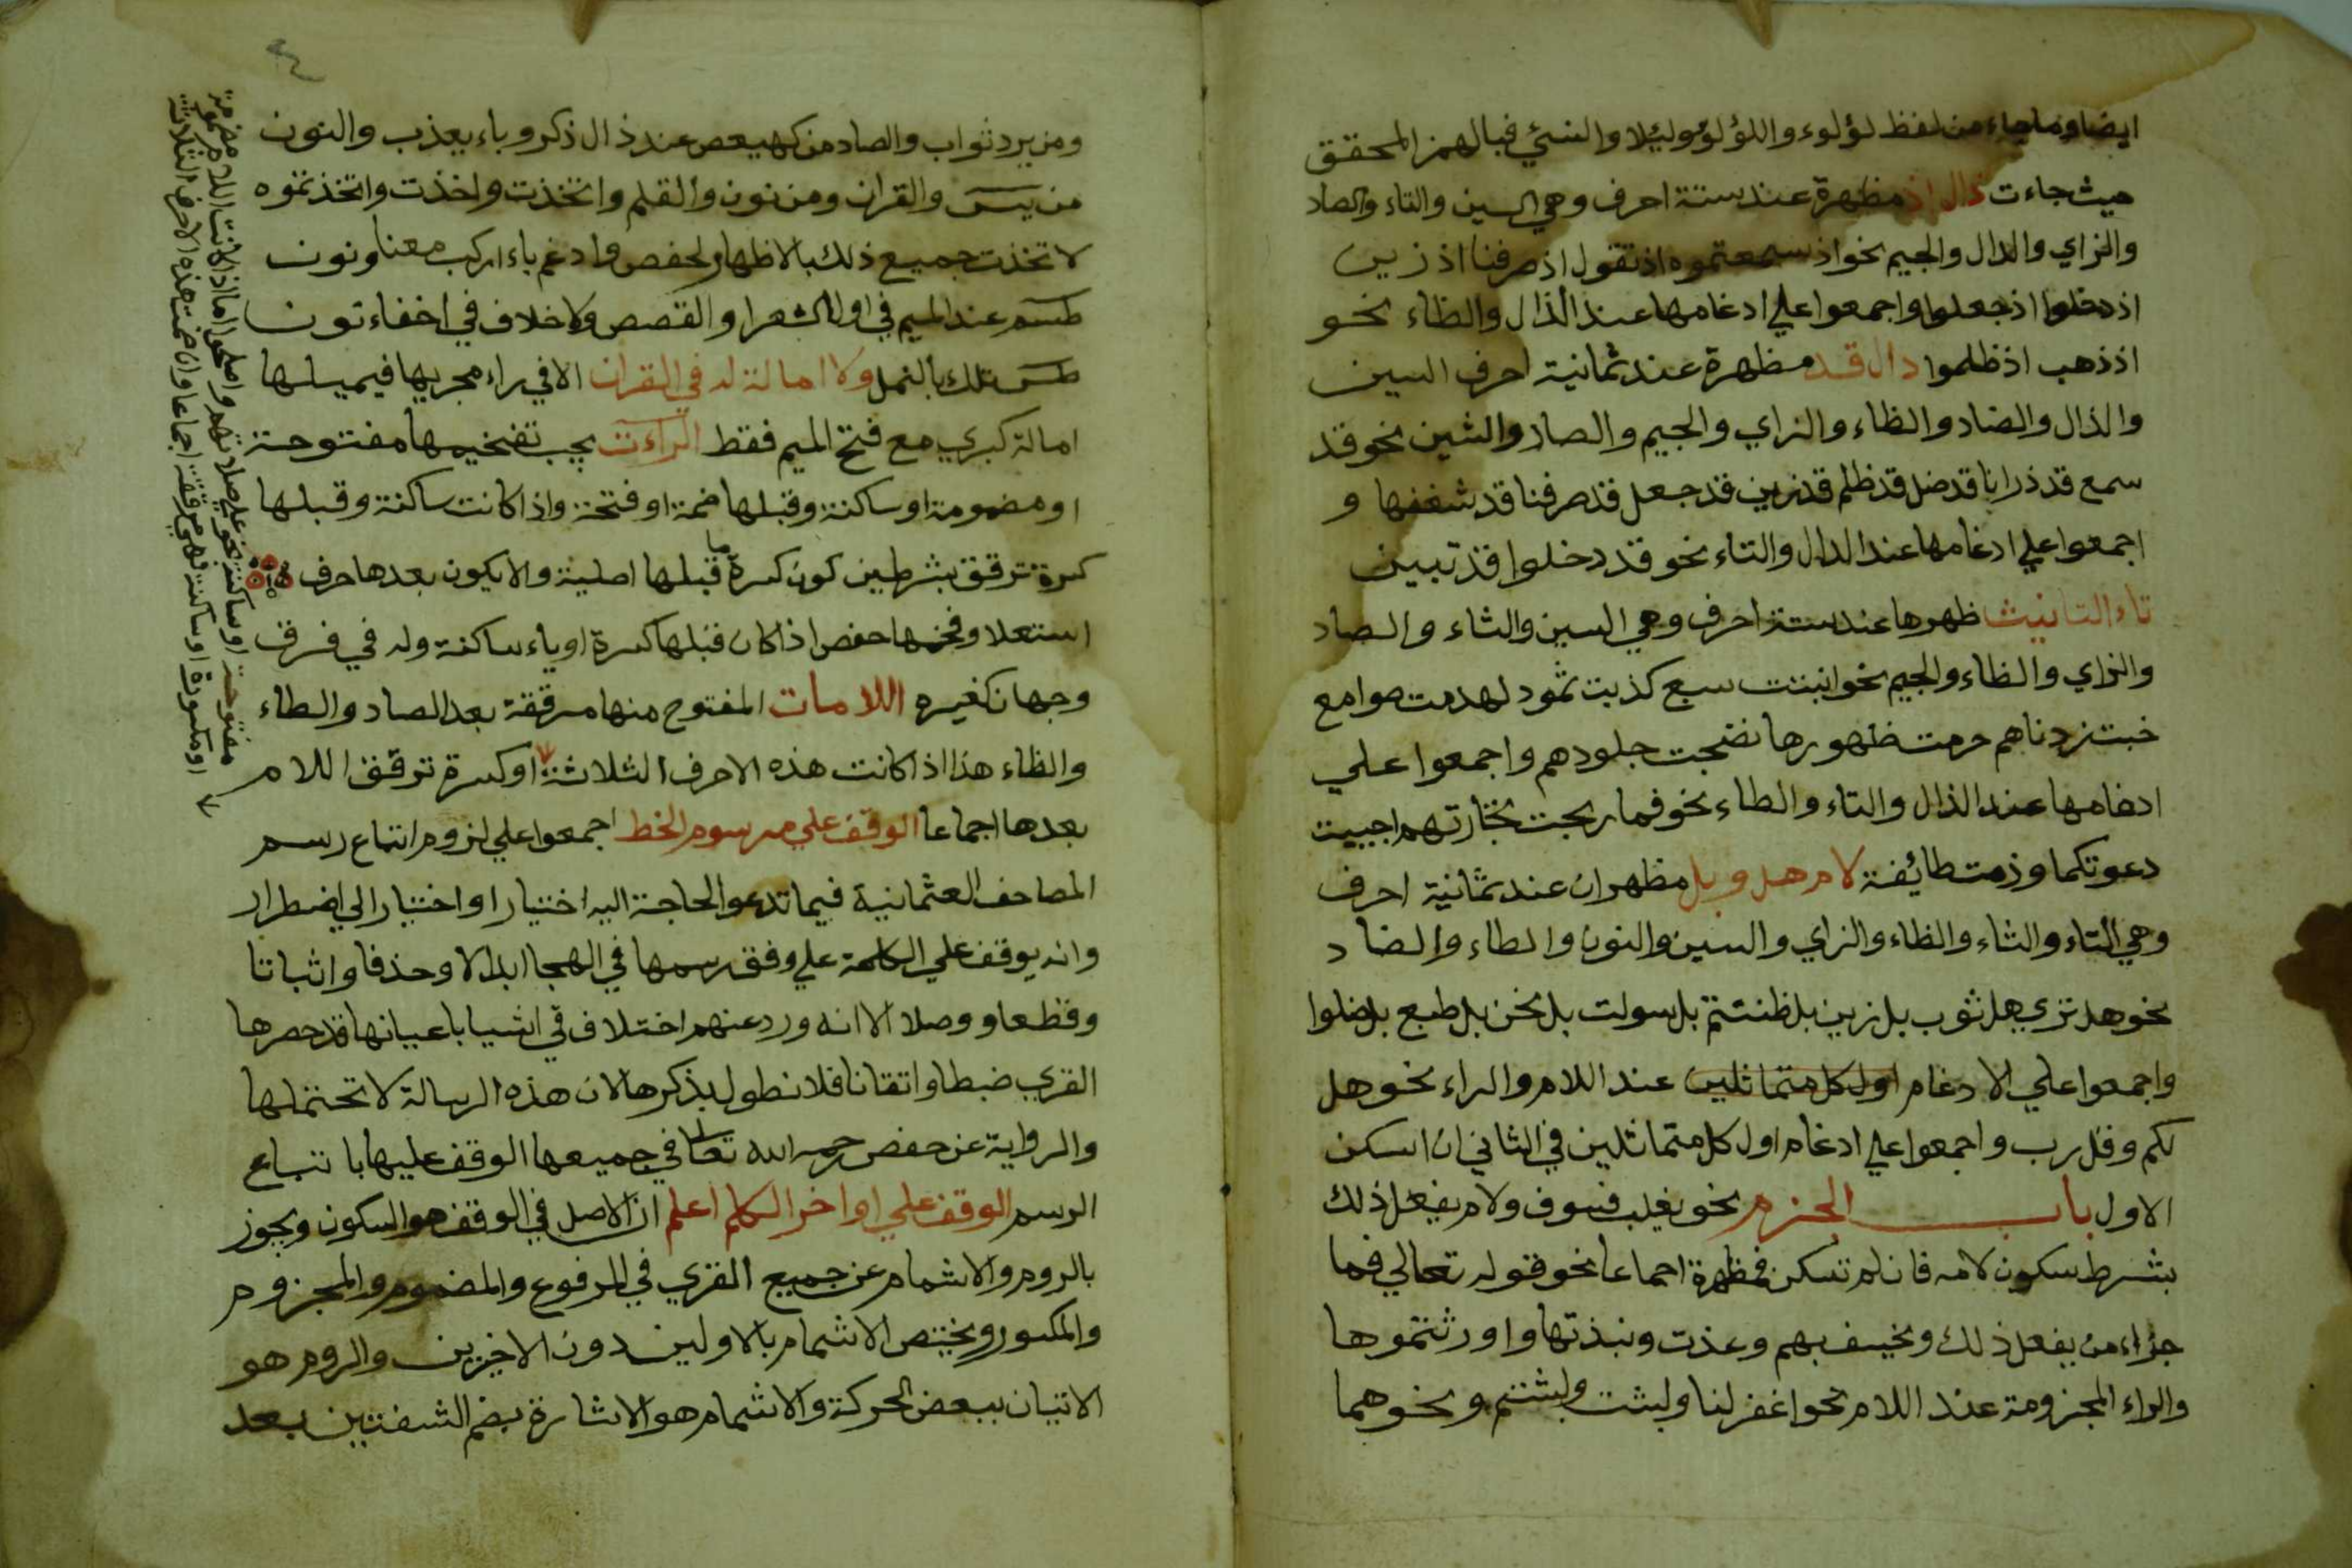 ايضا وما جاء من لفظ لؤلوء واللؤلؤ وليلا والنسئ فبالهمز المحقق
حيث جاءت ذال اذ مظهرة عند ستة احرف وهي السين والتاء والصاد
والزاي والدال والجيم نحو اذ سمعتموه اذ تقول اذ صرفنا اذ زين
اذ دخلوا اذ جعلوا واجمعوا علي ادغامها عند الذال والظاء نحو
اذ ذهب اذ ظلموا دال قد مظهرة عند ثمانية احرف السين
والذال والضاد والظاء والزاي والجيم والصاد والشين نحو قد
سمع قد ذرانا قد ضل قد ظلم قد زين قد جعل قد صرفنا قد شغفها و
اجمعوا علي ادغامها عند الدال والتاء نحو قد دخلوا قد تبين
تاء التانيث ظهرها عند ستة احرف وهي السين والثاء والصاد
والزاي والظاء والجيم نحو انبتت سبع كذبت ثمود لهدمت صوامع
خبت زدناهم حرمت ظهورها نضجت جلودهم واجمعوا علي
ادغامها عند الذال والتاء والطاء نحو فما ربحت تجارتهم اجيبت
دعوتكما وذمت طائيفة لام هل وبل مظهران عند ثمانية احرف
وهي التاء والثاء والظاء والزاي والسين والنون والطاء والضاد
نحو هل تري هل ثوب بل زين بل ظننتم بل سولت بل نحن بل طبع بل ضلوا
واجمعوا علي الادغام اول كل متماثلين عند اللام والراء نحو هل
لكم وقل رب واجمعوا علي ادغام اول كل متماثلين في الثاني ان اسكن
الاول باب الجزم نحو يغلب فسوف ولام يفعل ذلك
بشرط سكون لامه فان لم تسكن فمظهرة اجماعا نحو قوله تعالي فما
جزاء من يفعل ذلك ونخسف بهم وعذت ونبذتها واورثتموها
والراء المجزومة عند اللام نحو اغفر لنا ولبثت ولبثتم ونحوهما
ومن يرد ثواب والصاد من كهيعص عند ذال ذكر وباء يعذب والنون
من يس والقران ومن نون والقلم واتخذت واخذت واتخذتموه
لاتخذت جميع ذلك بالاظهار لحفص وادغم باء اركب معنا ونون
طسم عند الميم في اول الشعرا والقصص ولا خلاف في اخفاء نون
طس تلك بالنمل ولا امالة له في القران الا في راء مجريها فيميلها
امالة كبري مع فتح الميم فقط الراءت يجب تفخيمها مفتوحة
او مضمومة او ساكنة وقبلها ضمة او فتحة واذا كانت ساكنة وقبلها
كسرة ترقق بشرطين كون كسرة ما قبلها اصلية والا يكون بعدها حرف
استعلا وفخمها حفص اذا كان قبلها كسرة او ياء ساكنة وله في فرق
وجهان كغيره اللامات المفتوح منها مرققة بعد الصاد والطاء
والظاء هذا اذا كانت هذه الاحرف الثلاثة او كسرة ترقق اللام
بعدها اجماعا الوقف علي مرسوم الخط اجمعوا علي لزوم اتباع رسم
المصاحف العثمانية فيما تدعو الحاجة اليه اختيارا واختبارا الي اضطرار
وانه يوقف علي الكلمة علي وفق رسمها في الهجا ابدالا وحذفا واثباتا
وقطعا ووصلا الا انه ورد عنهم اختلاف في اشيا باعيانها قد حصرها
القري ضبطا واتقانا فلا نطول بذكرها لان هذه الرسالة لا تحتملها
والرواية عن حفص رحمه الله تعالي في جميعها الوقف عليها باتباع
الرسم الوقف علي اواخر الكلم اعلم ان الاصل في الوقف هو السكون ويجوز
بالروم والاشمام عن جميع القري في المرفوع والمضموم والمجزوم
والمكسور ويختص الاشمام بالاولين دون الاخيرين والروم هو
الاتيان ببعض الحركة والاشمام هو الاشارة بضم الشفتين بعد
مفتوحة او ساكنة نحو علي صلاتهم واصلحوا اما اذا كانت اللام مضمومة
او مكسورة او ساكنة فهي مرققة اجماعا وان ضمت هذه الاحرف الثلاث